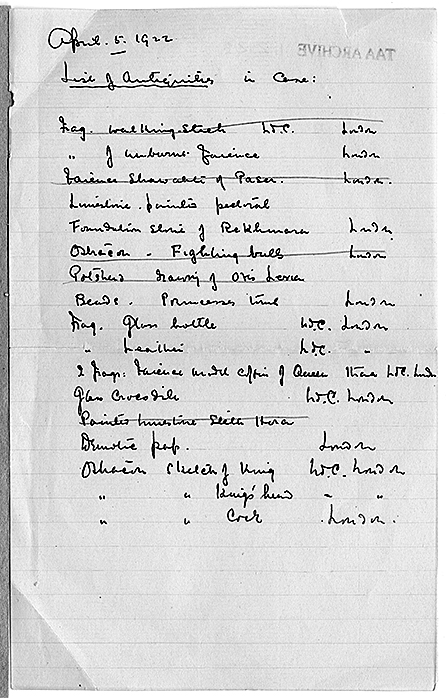 April. 5. 1922
TAA ARCHIVE
List of Antiquities in Case:
Frag. walking stick W.C. London
" of unburnt faience London
Faience Shawabti of Paser. London.
Limestone. painted pectoral
Foundation stone of Rekhmara London
Ostracon. Fighting bulls London
Potsherd drawing of Ovis
Beads. Princesses tomb London
Frag. Glass bottle W.C. London
" Leather W.C. "
2 Frags: Faience model of Queen W.C. Lond
Glass Crocodile W.C. London
Painted limestone
Demotic pap. London
Ostracon Sketch of King W.C. London
" " King's head - "
" " Cock London.